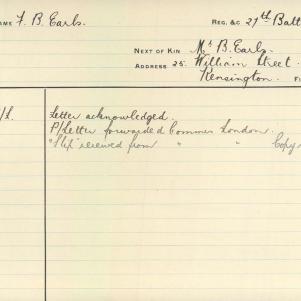 NAME F. B. Earls. REG. &C 27th Batt
NEXT OF KIN Mr B. Earls.
ADDRESS 25. William Street.
Kensington.
/L. Letter acknowledged.
P/Letter forwarded Commrs London.
"Slip" received from " " Copy